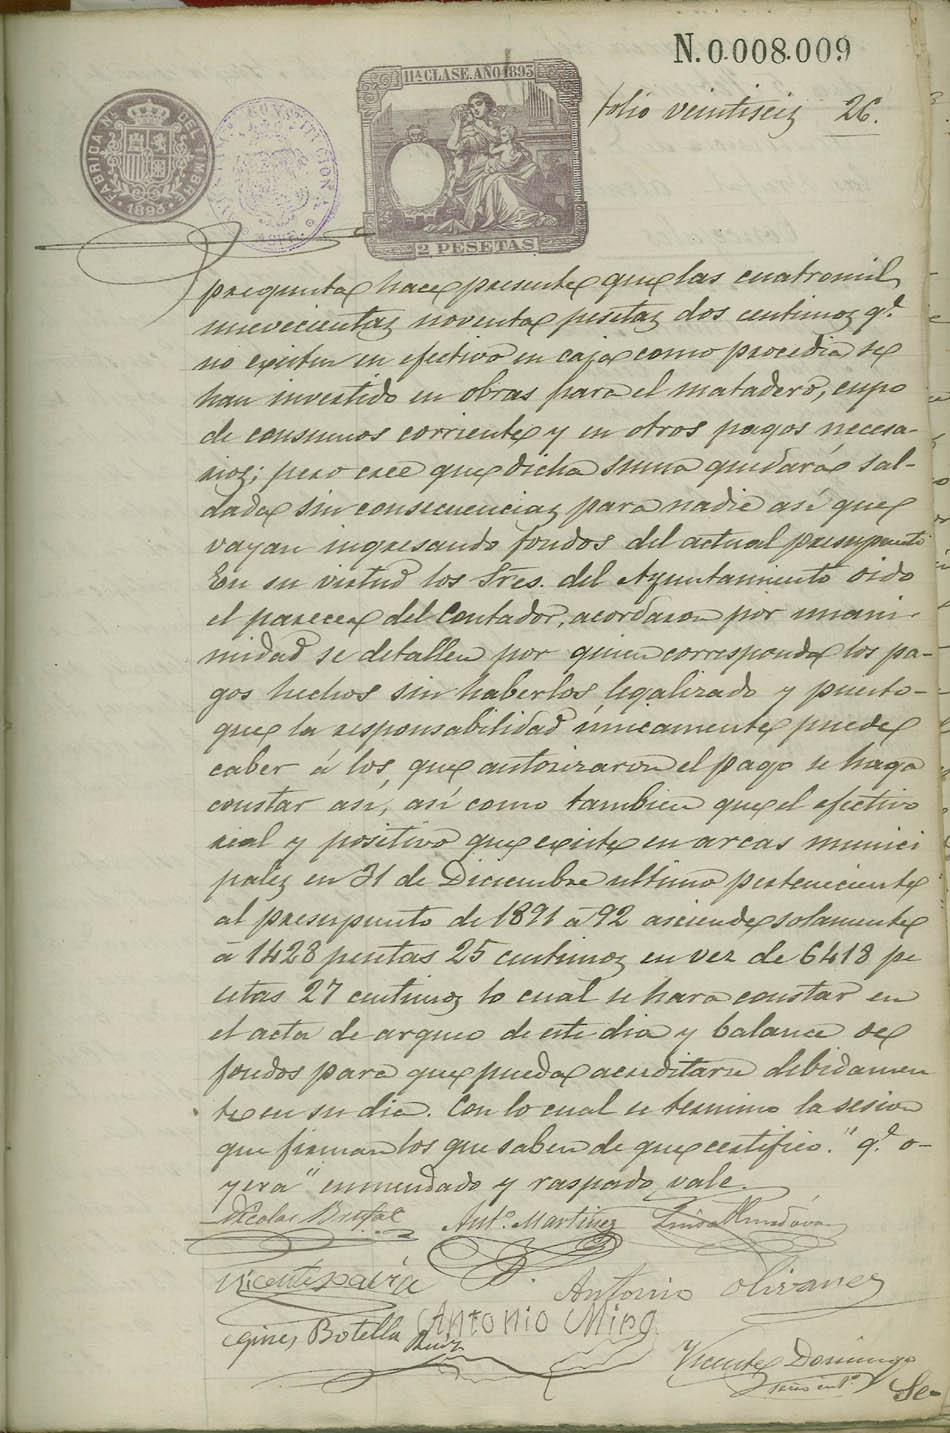 N.0.008.009
11ª CLASE. AÑO 1893
folio veintiseiz 26.
FABRICA Nº DEL TIMBRE
1893
CONSTITUCIONAL
2 PESETAS
pregunta hace presente que las cuatromil
nuevecientaz noventa pesetaz dos centimoz q.e
no existen en efectivo en caja como procedia se
han invertido en obras para el matadero, cupo
de consumos corriente y en otros pagos necesa-
rioz; pero cree que dicha suma quedará sal-
dada sin consecuenciaz para nadie así que
vayan ingresando fondos del actual presupuesto
En su virtud los Sres. del Ayuntamiento oido
el parecer del Contador, acordaron por unani-
midad se detallen por quien corresponda los pa-
gos hechos sin haberlos legalizado y puesto-
que la responsabilidad únicamente puede
caber á los que autorizaron el pago se haga
constar así, así como tambien que el efectivo
real y positivo que existe en arcas munici
palez en 31 de Diciembre ultimo perteneciente
al presupuesto de 1891 á 92 asciende solamente
á 1428 pesetas 25 centimoz en vez de 6418 pe
setas 27 centimoz lo cual se hara constar en
el acta de arqueo de este dia y balance de
fondos para que pueda acreditarse debidamen
te en su dia. Con lo cual se termino la sesion
que firman los que saben de que certifico. " q.e o-
yera " enmendado y raspado vale.
Nicolas Brufal Ant.o Martinez Luis Almodóvar
Vicente Antonio Olivarez
Gines Botella Antonio Mira
Ruiz
Vicente Domingo
Se-